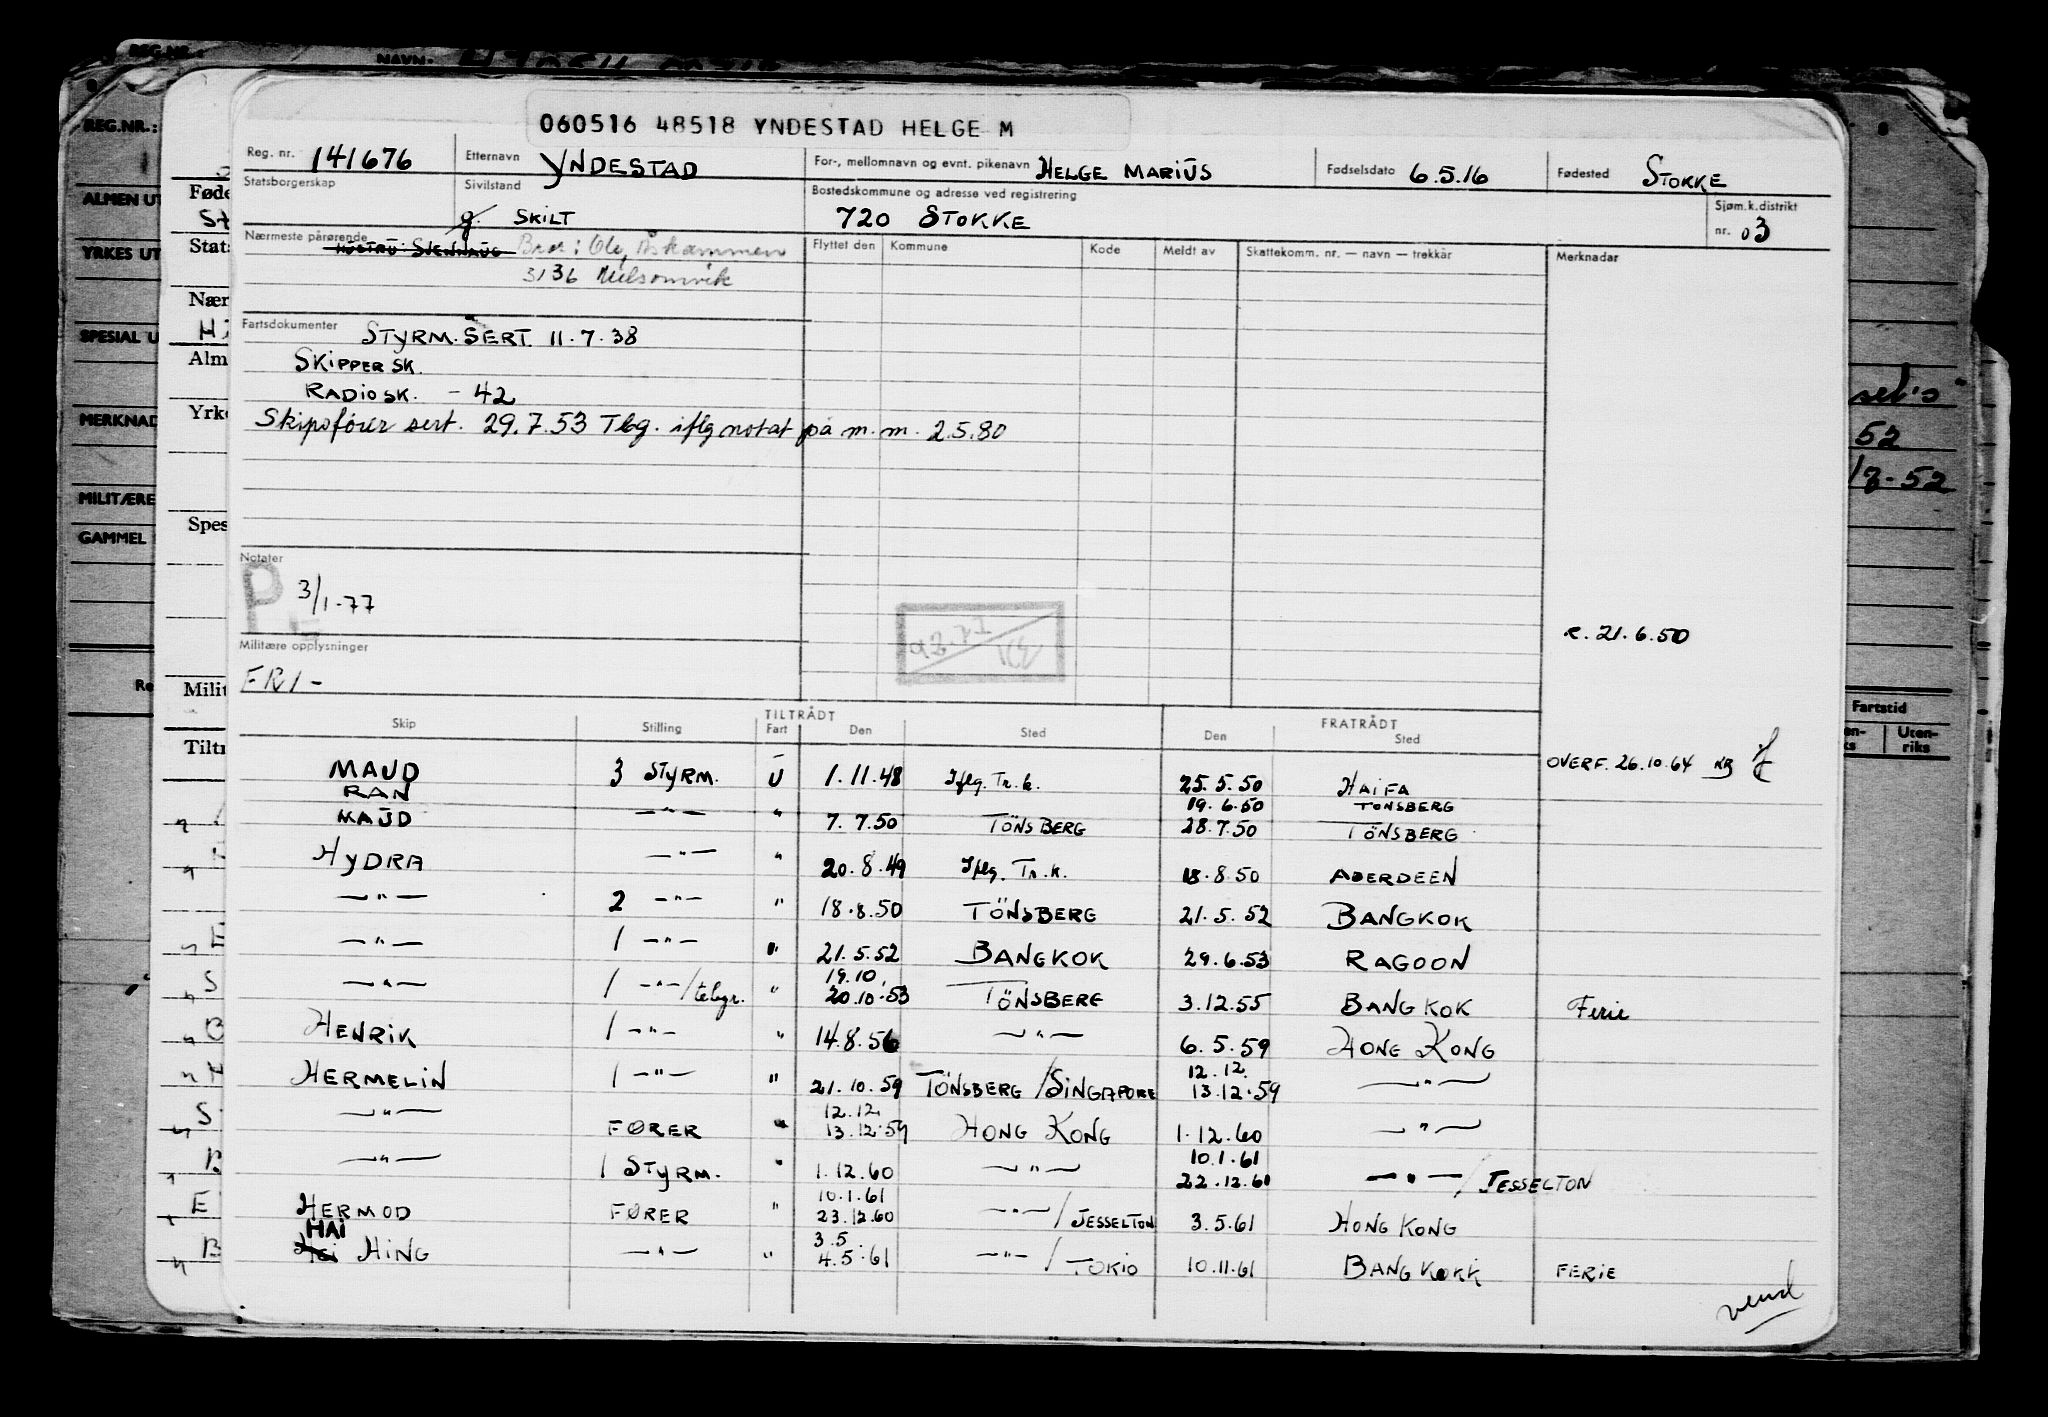 060516 48518 YNDESTAD HELGE M
Reg. nr. 141676 Etternavn YNDESTAD For-, mellomnavn og evnt. pikenavn HELGE MARIUS Fødselsdato 6.5.16 Fødested STOKKE
Statsborgerskap Sivilstand g. SKILT Bostedskommune og adresse ved registrering 720 STOKKE Sjøm.k.distrikt nr. 03
Nærmeste pårørende HUSTRU: Bror: Ole, Åskammen Flyttet den Kommune Kode Meldt av Skattekomm. nr. — navn — trekkår Merknadar
3136
Fartsdokumenter STYRM. SERT. 11.7.38
SKIPPER SK.
RADIO SK. - 42
Skipsfører sert. 29.7.53 Tbg. iflg notat på m.m. 2.5.80
Notater
P 3/1-77
r. 21.6.50
Militære opplysninger
FRI -
TILTRÅDT FRATRÅDT
Skip Stilling Fart Den Sted Den Sted
OVERF. 26.10.64 KB
MAUD 3 STYRM. U 1.11.48 Iflg. Tr.k. 25.5.50 HAIFA
RAN 19.6.50 TÖNSBERG
MAUD —"— " 7.7.50 TÖNSBERG 28.7.50 TÖNSBERG
HYDRA —"— " 20.8.49 Iflg. Tr.k. 18.8.50 ABERDEEN
—"— 2 —"— " 18.8.50 TÖNSBERG 21.5.52 BANGKOK
—"— 1 —"— " 21.5.52 BANGKOK 29.6.53 RAGOON
—"— 1 —"—/telegr. " 19.10. 20.10.53 TÖNSBERG 3.12.55 BANGKOK Ferie
HENRIK 1 —"— " 14.8.56 —"— 6.5.59 HONG KONG
HERMELIN 1 —"— " 21.10.59 TÖNSBERG/SINGAPORE 12.12. 13.12.59 —"—
—"— FØRER " 12.12. 13.12.59 HONG KONG 1.12.60 —"—
—"— 1 STYRM. " 1.12.60 —"— 10.1.61 22.12.60 —"—/JESSELTON
HERMOD FØRER " 10.1.61 23.12.60 —"—/JESSELTON 3.5.61 HONG KONG
HAI
Hai HING —"— " 3.5. 4.5.61 —"—/TOKIO 10.11.61 BANGKOKK FERIE
vend
REG.NR.:
NAVN:
REG.NR.:
ALMEN UT
YRKES UT
SPESIAL U
MERKNAD
MILITÆRE
GAMMEL
Føde
Stats
Nær
Alm
Yrke
Spes
Milit
Tiltr
52
Fartstid
Uten-
riks